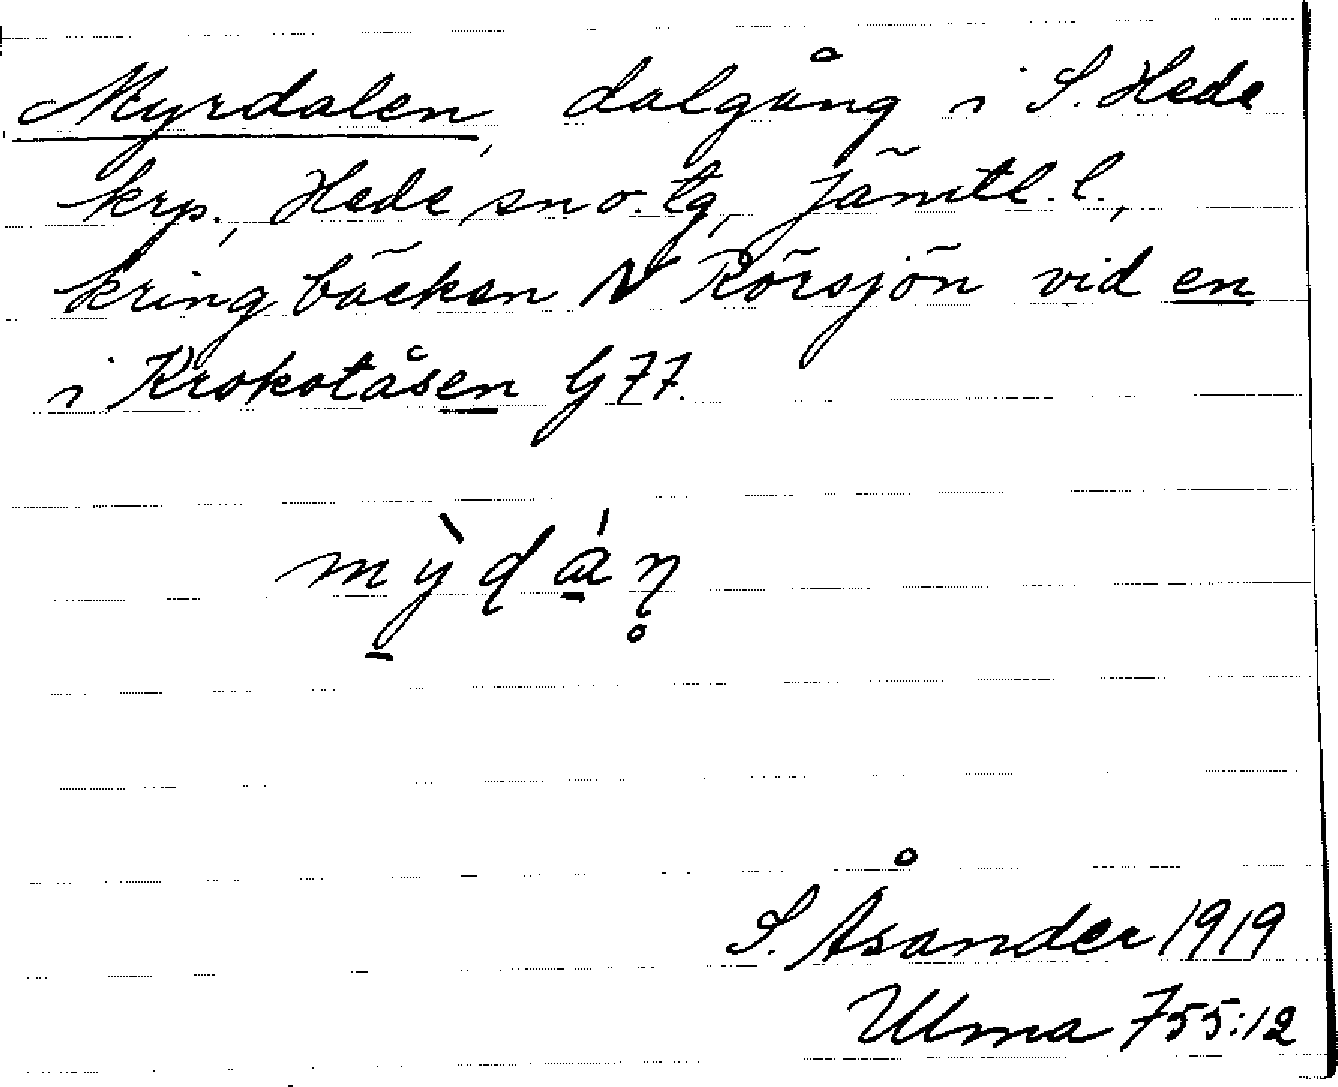 Myrdalen, dalgång i S. Hede
krp., Hede sn o. tg, Jämtl. l.,
kring bäcken N Rörsjön vid en
i Krokotåsen G 77.
S. Åsander 1919
Ulma 755:12